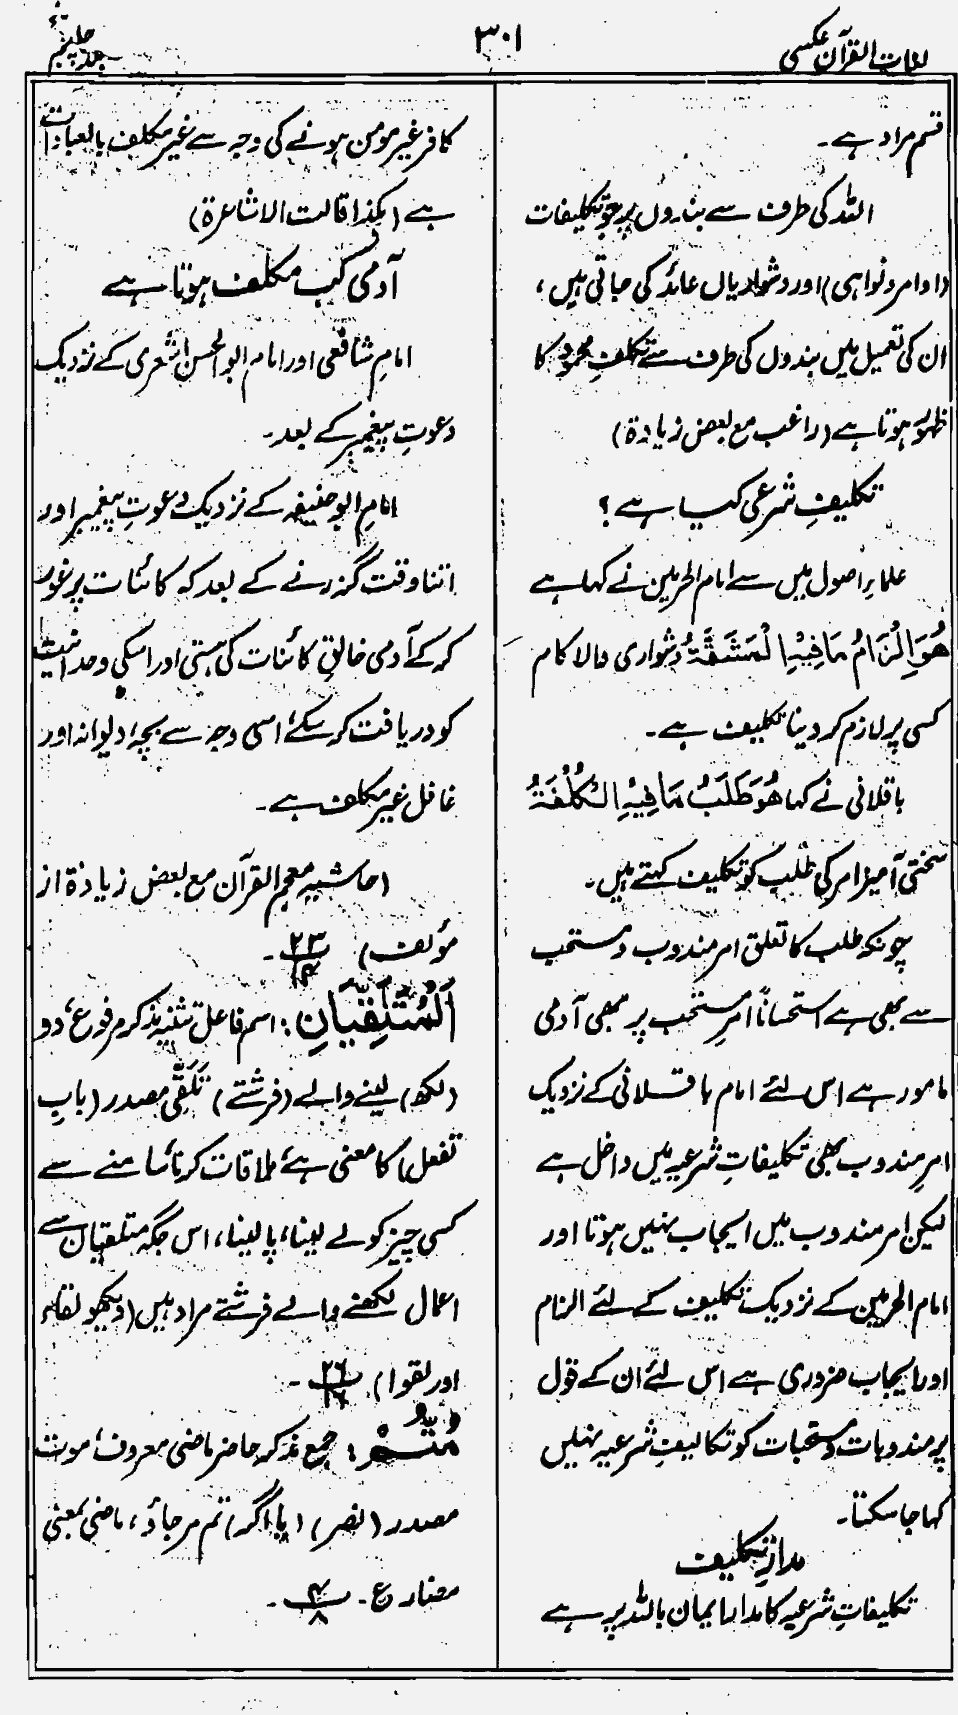 لغات القرآن عکسی
۳۰۱
جلد پنجم
قسم مراد ہے۔
اللہ کی طرف سے بندوں پر جو تکلیفات
(اوامر و نواہی) اور دشواریاں عائد کی جاتی ہیں،
ان کی تعمیل میں بندوں کی طرف سے تکلفِ محمود کا
ظہور ہوتا ہے (راغب مع بعض زیادۃ)
تکلیفِ شرعی کیا ہے؟
علماءِ اصول میں سے امام الحرمین نے کہا ہے
ھُوَ اِلْزَامُ مَا فِیْہِ الْمَشَقَّۃُ دشواری والا کام
کسی پر لازم کر دینا تکلیف ہے۔
باقلانی نے کہا ھُوَ طَلَبُ مَا فِیْہِ الْکُلْفَۃُ
سختی آمیز امر کی طلب کو تکلیف کہتے ہیں۔
چونکہ طلب کا تعلق امر مندوب و مستحب
سے بھی ہے استحساناً امرِ مستحب پر بھی آدمی
مامور ہے اس لئے امام باقلانی کے نزدیک
امرِ مندوب بھی تکلیفاتِ شرعیہ میں داخل ہے
لیکن امر مندوب میں ایجاب نہیں ہوتا اور
امام الحرمین کے نزدیک تکلیف کے لئے الزام
اور ایجاب ضروری ہے اس لئے ان کے قول
پر مندوبات و مستحبات کو تکالیفِ شرعیہ نہیں
کہا جا سکتا۔
مدارِ تکلیف
تکلیفاتِ شرعیہ کا مدار ایمان باللہ پر ہے
کافر غیر مومن ہونے کی وجہ سے غیر مکلف بالعبادات
ہے (ہکذا قالت الاشاعرۃ)
آدمی کب مکلف ہوتا ہے
امامِ شافعی اور امام ابوالحسن اشعری کے نزدیک
دعوتِ پیغمبر کے بعد۔
امامِ ابوحنیفہ کے نزدیک دعوتِ پیغمبر اور
اتنا وقت گزرنے کے بعد کہ کائنات پر غور
کر کے آدمی خالقِ کائنات کی ہستی اور اسکی وحدانیت
کو دریافت کر سکے، اسی وجہ سے بچہ، دیوانہ اور
غافل غیر مکلف ہے۔
(حاشیہ معجم القرآن مع بعض زیادۃ از
مؤلف) ۲۳/۱۴۔
اَلْمُتَلَقِّیَانِ: اسم فاعل تثنیہ مذکر مرفوع، دو
(لکھ) لینے والے (فرشتے) تَلَقِّی مصدر (بابِ
تفعل) کا معنی ہے، ملاقات کرنا، سامنے سے
کسی چیز کو لے لینا، پا لینا، اس جگہ متلقیان سے
اعمال لکھنے والے فرشتے مراد ہیں (دیکھو لقاء
اور لقوا) ۲۶/۱۶۔
مُتُّمْ: جمع مذکر حاضر ماضی معروف، موت
مصدر (نصر) (یا اگر) تم مر جاؤ، ماضی بمعنی
مضارع۔ ۴/۸۔